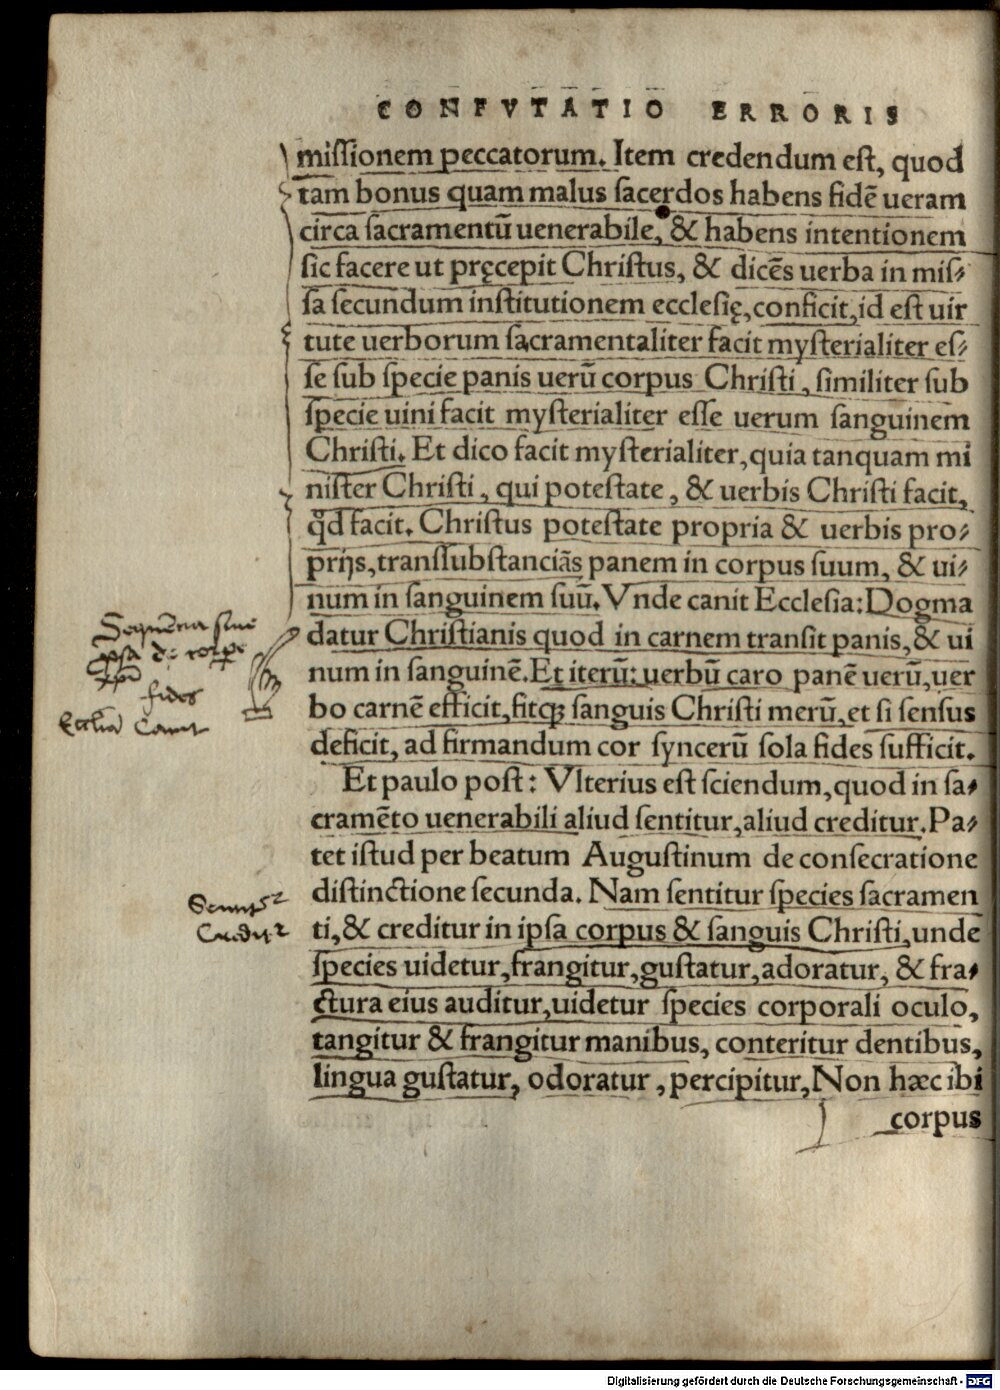 CONFVTATIO ERRORIS
miſſionem peccatorum. Item credendum eſt, quod
tam bonus quam malus ſacerdos habens fidē ueram
circa ſacramentū uenerabile, & habens intentionem
ſic facere ut pręcepit Chriſtus, & dicēs uerba in miſ⸗
ſa ſecundum inſtitutionem eccleſię, conficit, id eſt uir
tute uerborum ſacramentaliter facit myſterialiter eſ⸗
ſe ſub ſpecie panis uerū corpus Chriſti, ſimiliter ſub
ſpecie uini facit myſterialiter eſſe uerum ſanguinem
Chriſti. Et dico facit myſterialiter, quia tanquam mi
niſter Chriſti, qui poteſtate, & uerbis Chriſti facit,
qd̛ facit. Chriſtus poteſtate propria & uerbis pro⸗
prijs, tranſſubſtanciās panem in corpus ſuum, & ui⸗
num in ſanguinem ſuū. Vnde canit Eccleſia: Dogma
datur Chriſtianis quod in carnem tranſit panis, & ui
num in ſanguinē. Et iterū: uerbū caro panē uerū, uer
bo carnē efficit, fitq; ſanguis Chriſti merū, et ſi ſenſus
deficit, ad firmandum cor ſyncerū ſola fides ſufficit.
Et paulo poſt: Vlterius eſt ſciendum, quod in ſa⸗
cramēto uenerabili aliud ſentitur, aliud creditur. Pa⸗
tet iſtud per beatum Auguſtinum de conſecratione
diſtinctione ſecunda. Nam ſentitur ſpecies ſacramen
ti, & creditur in ipſa corpus & ſanguis Chriſti, unde
ſpecies uidetur, frangitur, guſtatur, adoratur, & fra⸗
ctura eius auditur, uidetur ſpecies corporali oculo,
tangitur & frangitur manibus, conteritur dentibus,
lingua guſtatur, odoratur, percipitur, Non hæc ibi
corpus
fides
Digitalisierung gefördert durch die Deutsche Forschungsgemeinschaft - DFG